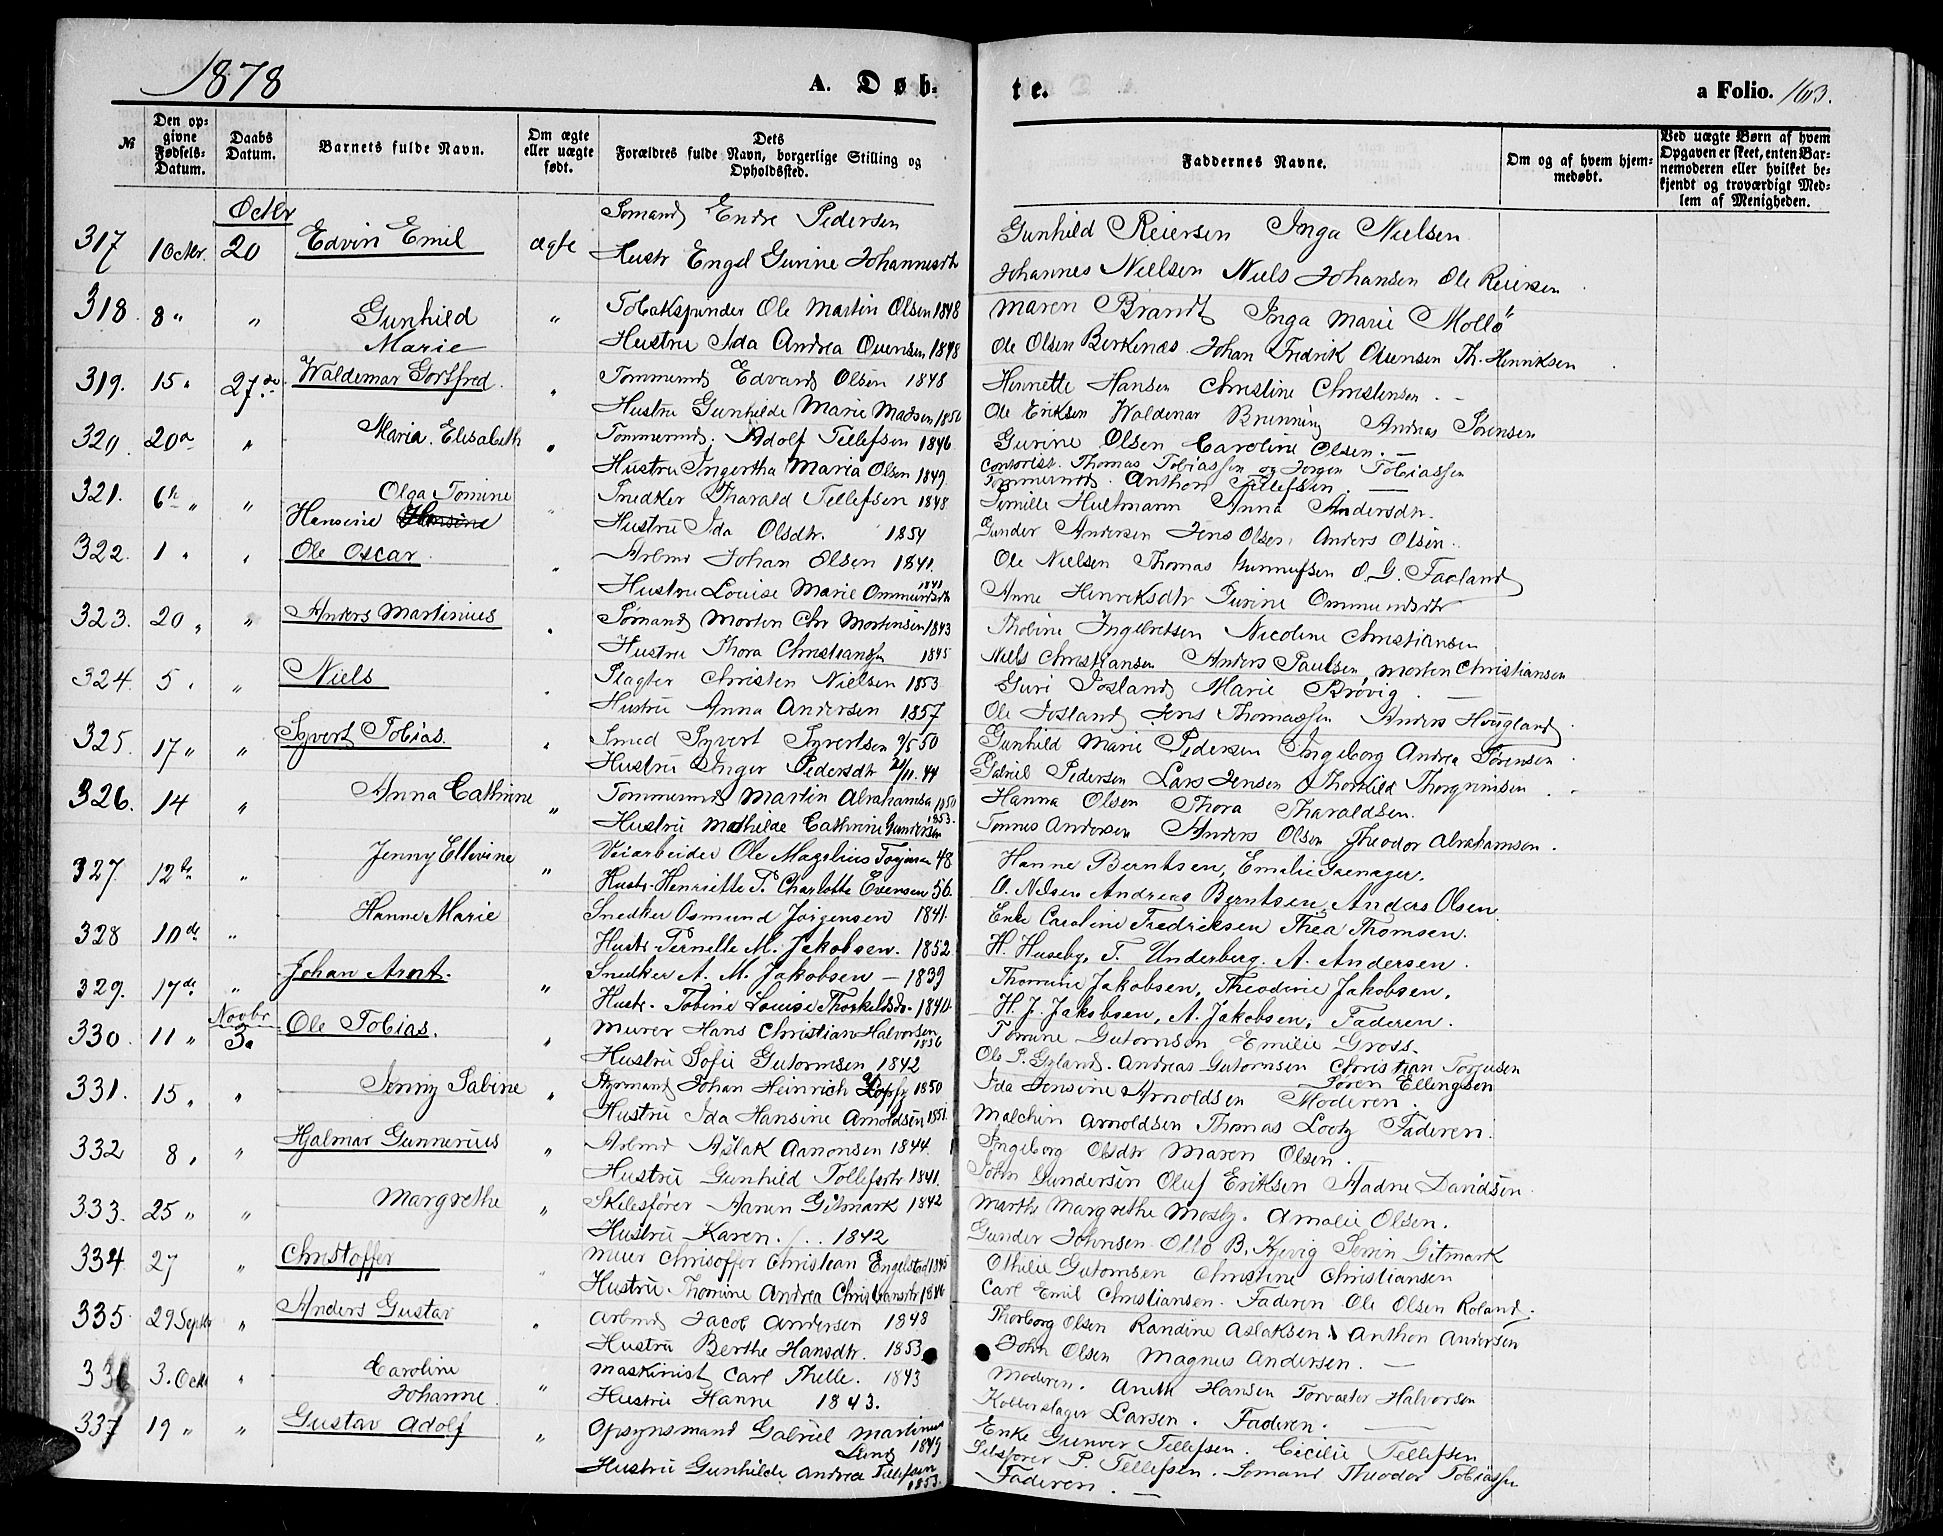 1878
A. Døb-
te.
a Folio. 163.
№
Den op-
givne
Fødsels-
Datum.
Daabs
Datum.
Barnets fulde Navn.
Om ægte
eller uægte
født.
Dets
Forældres fulde Navn, borgerlige Stilling og
Opholdssted.
Faddernes Navne.
Om og af hvem hjem-
medøbt.
Ved uægte Børn af hvem
Opgaven er skeet, enten Bar-
nemoderen eller hvilket be-
kjendt og troværdigt Med-
lem af Menigheden.
Octbr
317 1 Octbr. 20 Edvin Emil ægte Sømand Endre Pedersen
Hustr Engel Gurine Johannesdtr
Gunhild Reiersen Inga Nielsen
Johannes Nielsen Niels Johansen Ole Reiersen
318. 8 " " Gunhild Marie " Tobakspinder Ole Martin Olsen 1848
Hustru Ida Andrea Evensen 1848
Maren Brandt Inga Marie Mollø
Ole Olsen Berkenes Johan Fredrik Evensen Th. Henriksen
319. 15 " 27de Waldemar Gottfred " Tømmermd Edvard Olsen 1848
Hustru Gunhilde Marie Madsen 1850
Henriette Hansen Christine Christensen
Ole Eriksen Waldemar Brunning Andreas Sørensen
320. 20de " Maria Elisabeth " Tømmermd. Adolf Tellefsen 1846
Hustru Ingertha Maria Olsen 1849
Gurine Olsen Caroline Olsen. —
Contorist. Thomas Tobiassen og Jørgen Tobiassen
Tømmermd. Anthon Tellefsen. —
321. 6te " " Olga Tomine Hansine " Snedker Tharald Tellefsen 1848
Hustru Ida Olsdtr. 1854
Pernille Hultmann Anna Andersdtr.
Gunder Andersen Jens Olsen Anders Olsen.
322. 1 " " Ole Oscar " Arbmd Johan Olsen 1841
Hustru Louise Marie Ommundsdtr 1841
Ole Nielsen Thomas Gunnufsen O. G. Fadland
Anne Henriksdtr Gurine Ommundsdtr
323. 20 " " Anders Martinius " Sømand Morten Chr Mortensen 1843
Hustru Thora Christiansen 1845
Thobine Ingebretsen Nicoline Christiansen
Niels Christiansen Anders Paulsen Morten Christiansen
324. 5 " " Niels " Slagter Christen Nielsen 1853
Hustru Anna Andersen 1857
Guri Josland Marie Brøvig. —
Ole Josland Jens Thomassen Anders Høygland
325. 17 " " Syvert Tobias. " Smed Syvert Syvertsen 9/5 50
Hustru Inger Pedersdtr 21/11. 44
Gunhild Marie Pedersen Ingeborg Andrea Sørensen
Gabriel Pedersen Lars Jensen Thorkild Thorgrimsen
326. 14 " Anna Cathrine " Tømmermd Martin Abrahamsen 1850
Hustru Mathilde Cathrine Gundersen 1853.
Hanna Olsen Thora Tharaldsen.
Tønnes Andersen Anders Olsen Theodor Abrahamsen.
327. 12te " Jenny Ellevine " Veiarbeider Ole Magelius Torjusen 48
Hustr. Henriette P. Charlotte Evensen 56.
Hanne Berntsen, Emelie Grenager.
O. Nelsen Andreas Berntsen, Anders Olsen.
328 10de " Hanne Marie Snedker Osmund Jørgensen 1841.
Hustr. Pernelle M. Jakobsen. 1852
Enke Caroline Fredriksen Thea Thomsen.
H. Huseby, T. Underberg. A. Andersen.
329. 17de " Johan Arnt. " Snedker A. M. Jakobsen — 1839
Hustr. Tobine Louise Thorkildsdtr. 1840
Thomine Jakobsen, Theodine Jakobsen.
H. J. Jakobsen, A. Jakobsen, Faderen.
Novbr
330. 11 " 3de Ole Tobias. " Murer Hans Christian Halvorsen 1836
Hustru Sofie Gutormsen 1842
Tomine Gutormsen Emilie Gross.
Ole P. Gyland. Andreas Gutormsen Christian Torjusen
Søren Ellengsen
331. 15 " " Jenny Sabine " Styrmand Johan Heinrich 1850
Hustru Ida Hansine Arnoldsen 1851
Ida Jensine Arnoldsen Moderen.
Malchin Arnoldsen Thomas Lootz Faderen.
332 8 " " Hjalmar Gunnerius " Arbmd Aslak Aanonsen 1844.
Hustru Gunhild Tollefsdtr 1841.
Ingeborg Olsdtr Maren Olsen.
John Gundersen Oluf Eriksen Aadne Davidsen
333. 25 " " Margrethe " Skibsfører Aanen Gitmark 1842
Hustru Karen. 1842
Marthe Margrethe Mosby. Amalie Olsen.
Gunder Johnsen Otto B. Kjevig Servin Gitmark
334. 27 " Christoffer " Murer Chrisoffer Christian Engelstad 1845
Hustru Thomine Andrea Christiansdtr 1846
Othilie Gutormsen Christine Christiansen
Carl Emil Christiansen. Faderen Ole Olsen Roland.
335. 29 Septbr " Anders Gustav " Arbmd Jacob Andersen 1848
Hustru Berthe Hansdtr. 1853
Thorborg Olsen Randine Aslaksen Anthon Andersen
John Olsen Magnus Andersen. —
336 3. Octb " Caroline Johanne " Maskinist Carl Thelle. 1843
Hustru Hanne 1843.
Moderen. Aneth Hansen Torvæter Halvorsen
Kobberslager Larsen. Faderen. —
337 19 " " Gustav Adolf " Opsynsmand Gabriel Martinus Lund 1849
Hustru Gunhilde Andrea Tellefsen 1853.
Enke Gunvor Tellefsen. Cicilie Tellefsen
P. Tellefsen. Sømand Theodor Tobiassen
Faderen. —